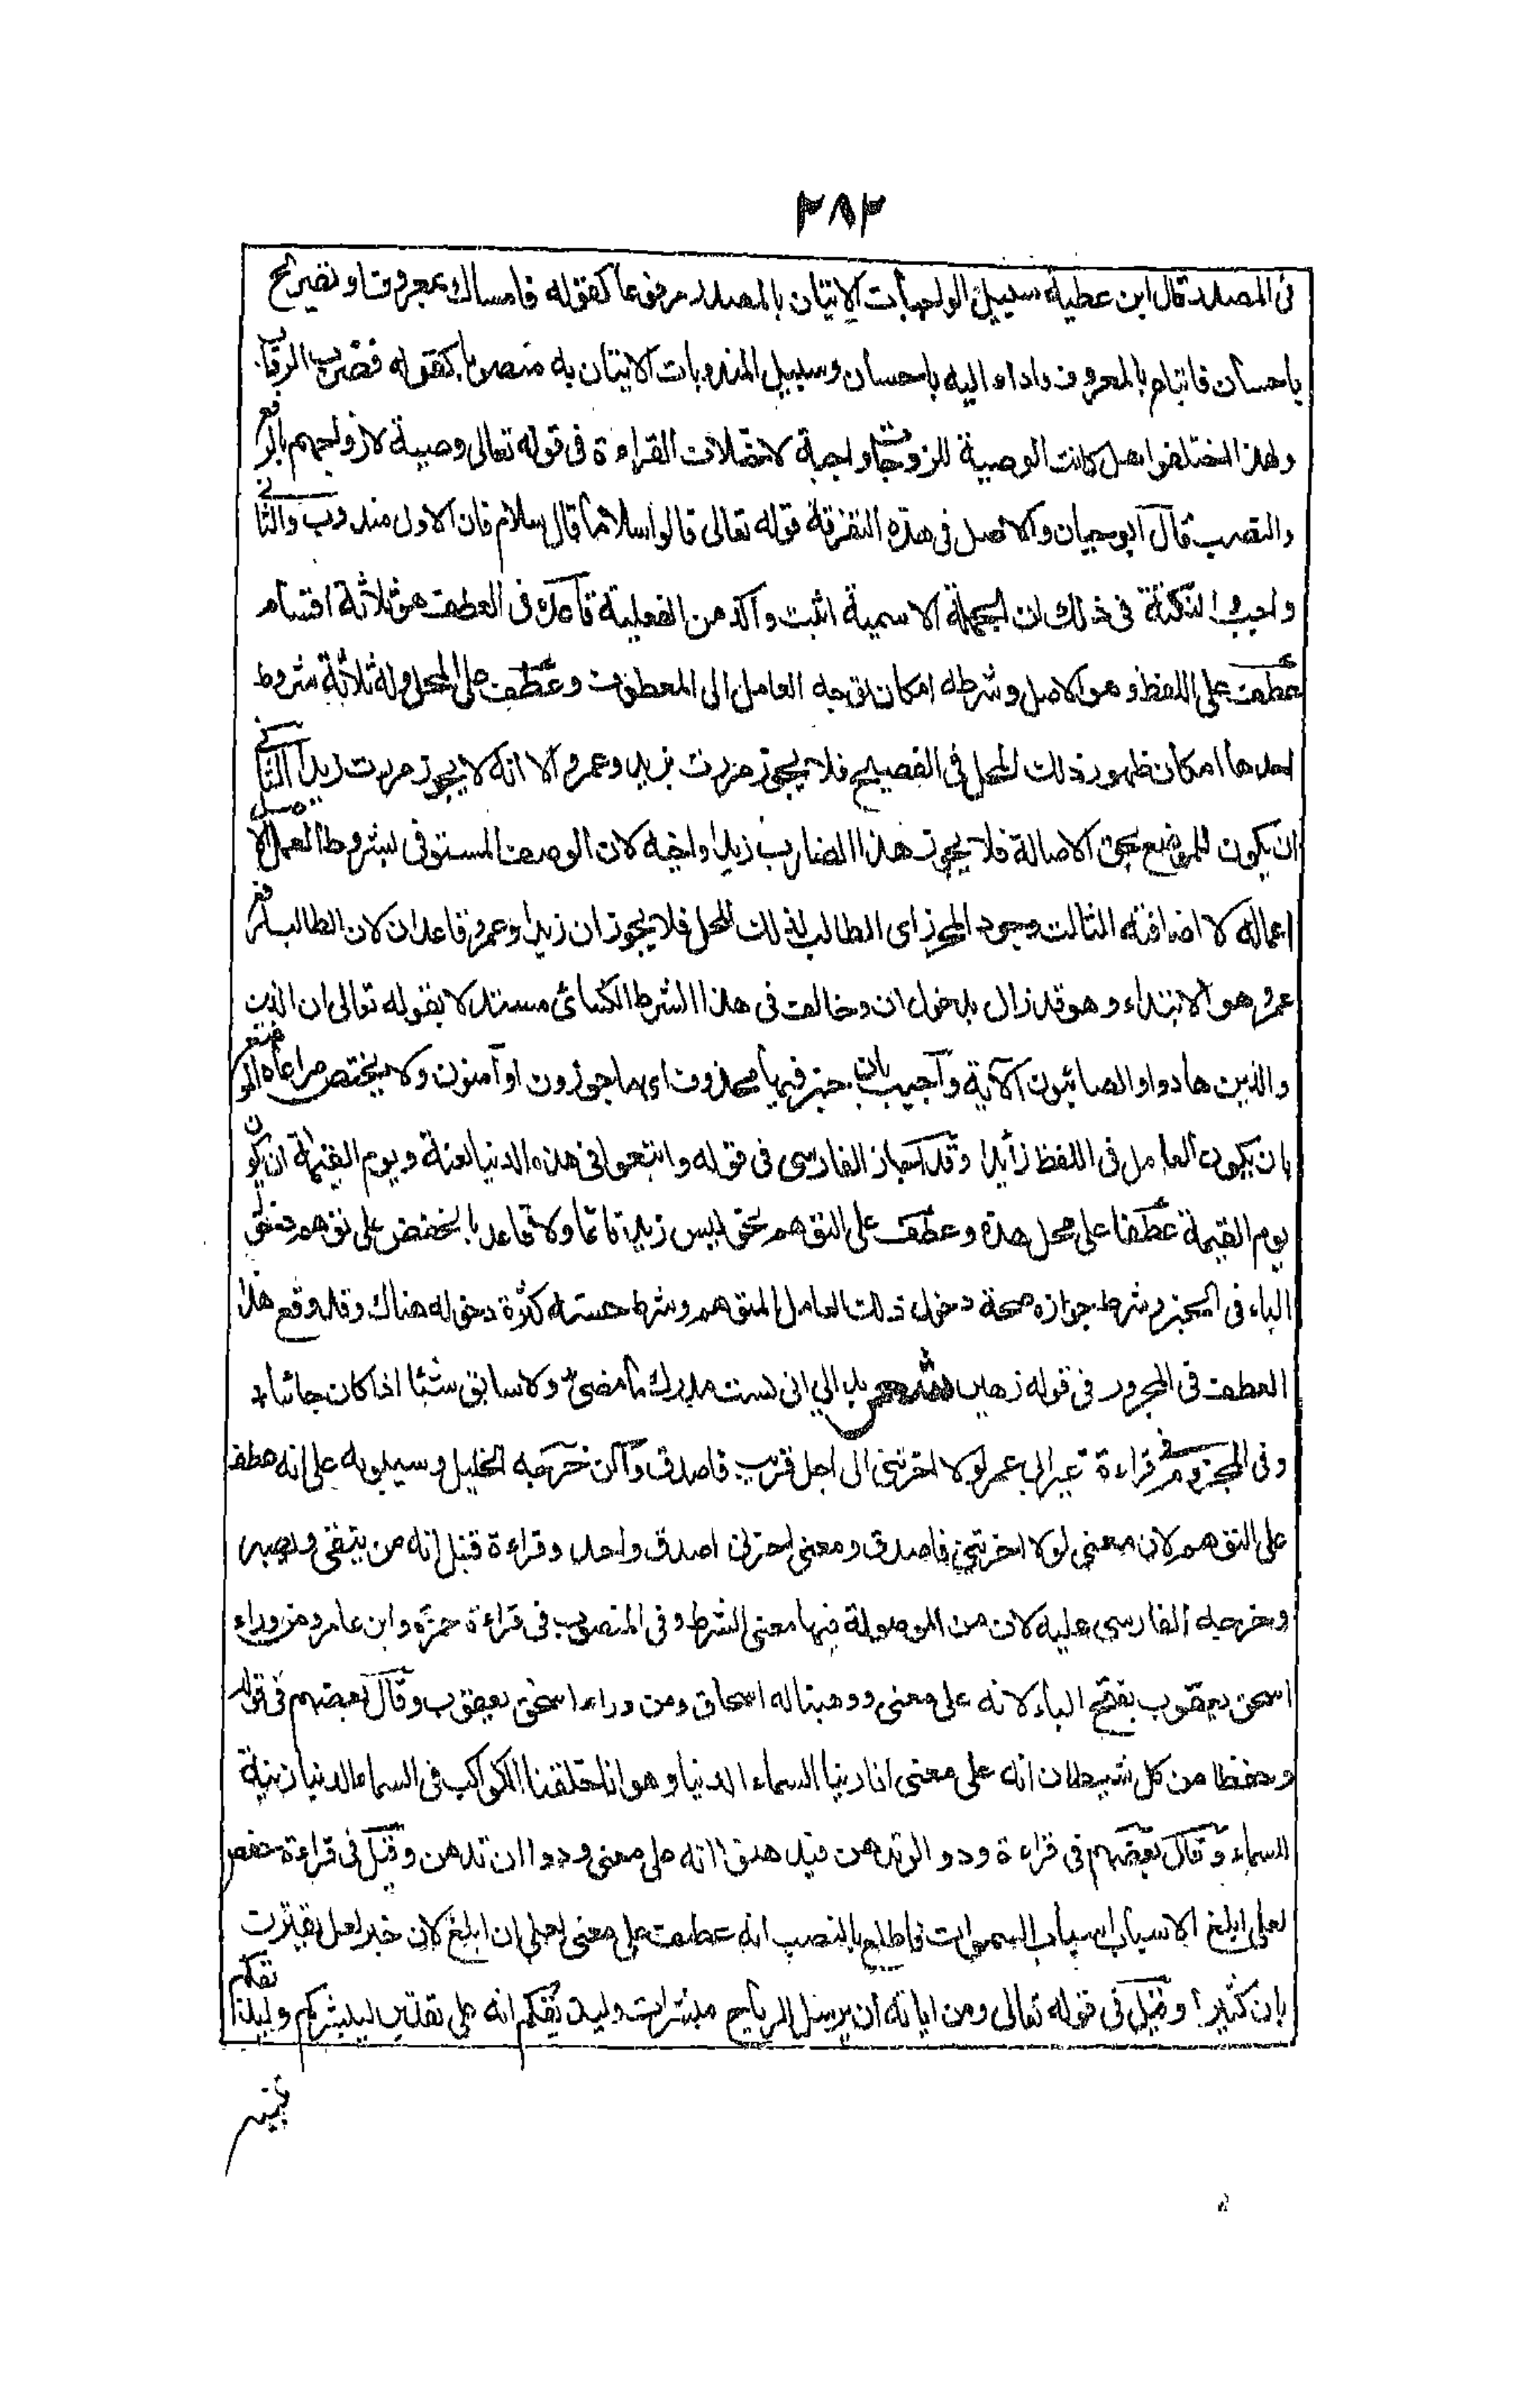 ٢٨٢
فى المصدر قال ابن عطية سبيل الواجبات الاتيان بالمصدر مرفوعا كقوله فامساك بمعروف او تصريح
باحسان فاتباع بالمعروف واداء اليه باحسان وسبيل المندوبات الاتيان به منصوبا كقوله فضرب الرقاب
ولهذا اختلفوا هل كانت الوصية للزوجات واجبة لاختلاف القراءة فى قوله تعالى وصية لازواجهم بالرفع
والنصب قال ابو حيان والاصل فى هذه التفرقة قوله تعالى قالوا سلاما قال سلام فان الاول مندوب والثانى
واجب والنكتة فى ذلك ان الجملة الاسمية اثبت وآكد من الفعلية قاعدة فى العطف هو ثلاثة اقسام
عطف على اللفظ وهو الاصل وشرطه امكان توجه العامل الى المعطوف وعطف على المحل وله ثلاثة شروط
احدها امكان ظهور ذلك المحل فى الفصيح فلا يجوز مررت بزيد وعمروا لانه لا يجوز مررت زيدا الثانى
ان يكون الموضع بحق الاصالة فلا يجوز هذا الضارب زيدا واخيه لان الوصف المستوفى لشروط العمل الاصل
اعماله لا اضافته الثالث وجود المحرز اى الطالب لذلك المحل فلا يجوز ان زيدا وعمرو قاعدان لان الطالب لرفع
عمرو هو الابتداء وهو قد زال بدخول ان وخالف فى هذا الشرط الكسائى مستدلا بقوله تعالى ان الذين
والذين هادوا والصائبون الآية وآجيب بان خبر فيها محذوف اى ماجوزون او آمنون ولا يختص مراعاة الموضع
بان يكون العامل فى اللفظ زائدا وقد اجاز الفارسى فى قوله واتبعوا فى هذه الدنيا لعنة ويوم القيمة ان يكون
يوم القيمة عطفا على محل هذه وعطف على التوهم نحو ليس زيد قائما ولا قاعد بالخفض على توهم دخول
الباء فى الخبر وشرط جوازه صحة دخول ذلك العامل المتوهم وشرط حسنه كثرة دخوله هناك وقد وقع هذا
العطف فى المجرور فى قوله زهير شعر بدا لي انى لست مدرك ما مضى ولا سابق شيئا اذا كان جائيا +
وفى المجزوم فى قراءة غير ابى عمرو لولا اخرتنى الى اجل قريب فاصدق واكن خرجه الخليل وسيبويه على انه عطف
على التوهم لان معنى لولا اخرتنى فاصدق ومعنى اخرنى اصدق واحد وقراءة قنبل انه من يتقى ويصبر
وخرجه الفارسى عليه لان من الموصولة فيها معنى الشرط وفى المنصوب فى قراءة حمزة وابن عامر ومن وراء
اسحق يعقوب بفتح الباء لانه على معنى ووهبنا له اسحاق ومن وراء اسحق يعقوب وقال بعضهم فى قوله
وحفظا من كل شيطان انه على معنى انا زينا السماء الدنيا وهو انا خلقنا الكواكب فى السماء الدنيا زينة
السماء وقال بعضهم فى قراءة ودوا لو تدهن فيدهنوا انه على معنى ودوا ان تدهن وقيل فى قراءة حفص
لعلى ابلغ الاسباب اسباب السموات فاطلع بالنصب انه عطف على معنى لعلى ان ابلغ لان خبر لعل يقترن
بان كثيرا وقيل فى قوله تعالى ومن اياته ان يرسل الرياح مبشرات وليذيقكم انه على تقدير ليبشركم وليذيقكم